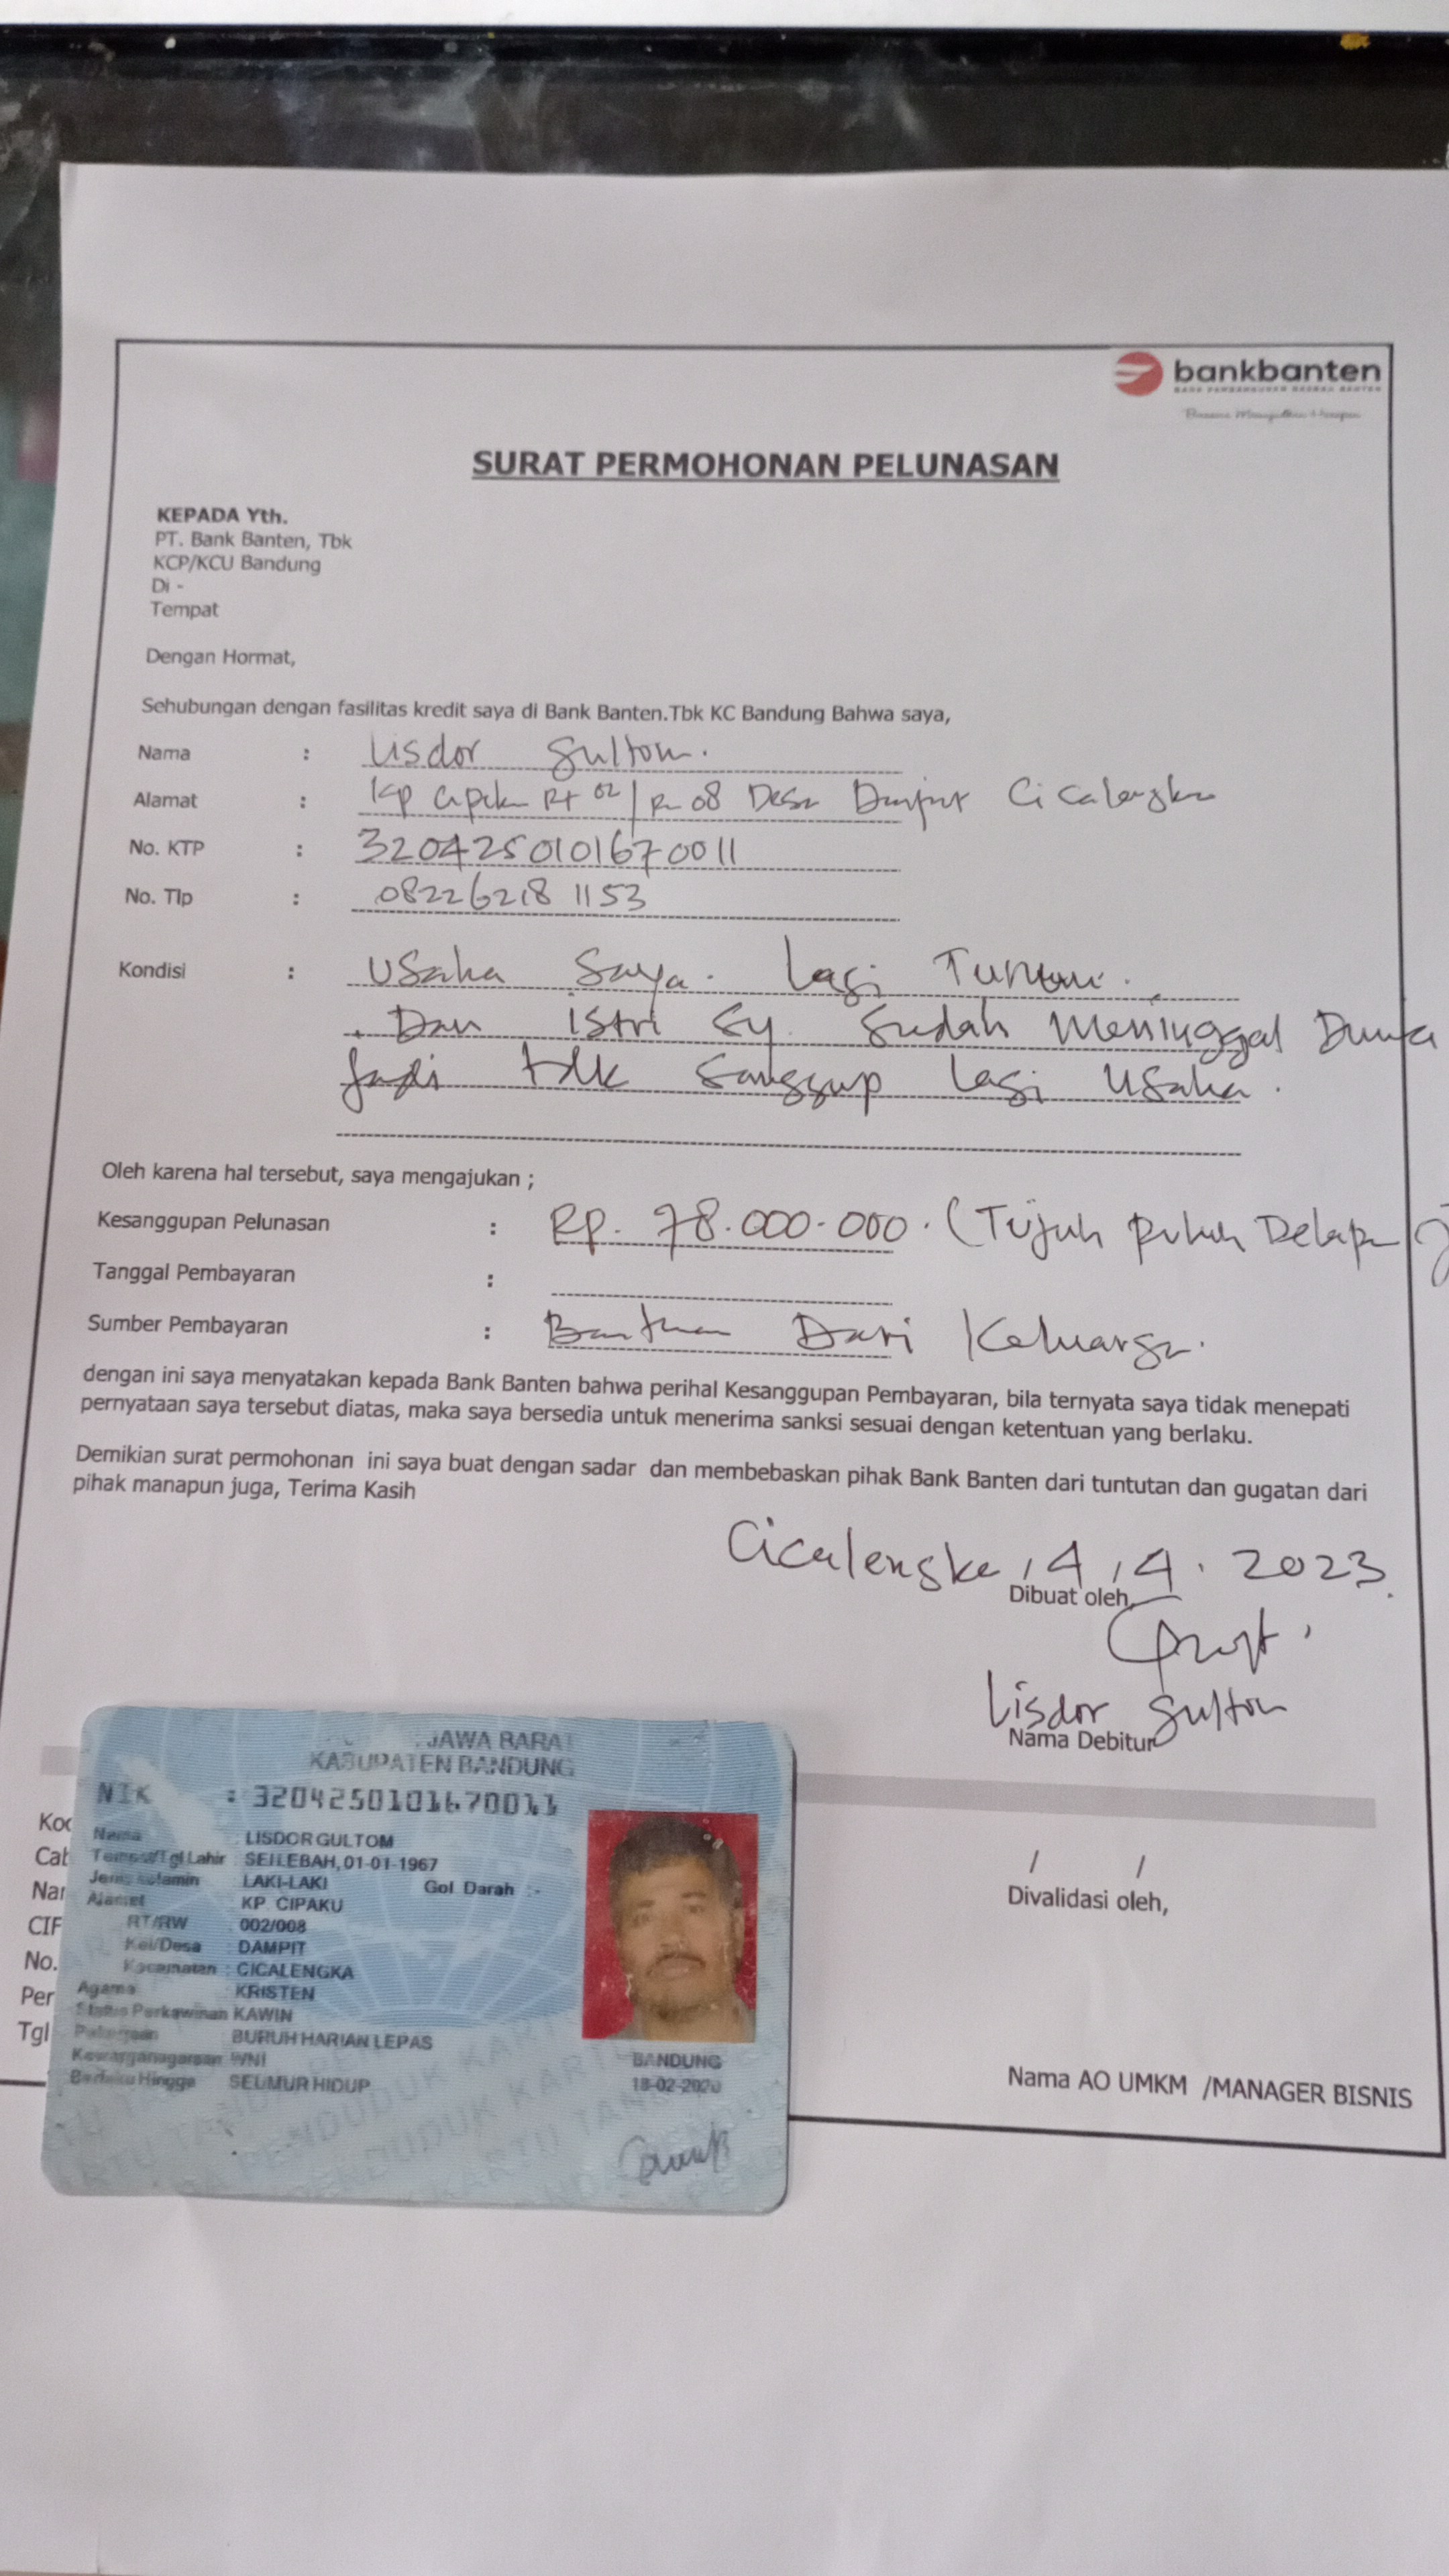 bankbanten
BANK PEMBANGUNAN DAERAH BANTEN
SURAT PERMOHONAN PELUNASAN
KEPADA Yth.
PT. Bank Banten, Tbk
KCP/KCU Bandung
Di -
Tempat
Dengan Hormat,
Sehubungan dengan fasilitas kredit saya di Bank Banten.Tbk KC Bandung Bahwa saya,
Nama : Lisdor Gultom.
Alamat : Kp Rt 02/Rw 08 Desa Dampit Cicalengka
No. KTP : 3204250101670011
No. Tlp : 082262181153
Kondisi : Usaha Saya. Lagi
Dan istri sy. sudah Meninggal Dunia
Jadi tdk Sanggup Lagi Usaha.
Oleh karena hal tersebut, saya mengajukan ;
Kesanggupan Pelunasan : Rp. 78.000.000. (Tujuh puluh Delapan
Tanggal Pembayaran :
Sumber Pembayaran : Bantuan Dari Keluarga.
dengan ini saya menyatakan kepada Bank Banten bahwa perihal Kesanggupan Pembayaran, bila ternyata saya tidak menepati
pernyataan saya tersebut diatas, maka saya bersedia untuk menerima sanksi sesuai dengan ketentuan yang berlaku.
Demikian surat permohonan ini saya buat dengan sadar dan membebaskan pihak Bank Banten dari tuntutan dan gugatan dari
pihak manapun juga, Terima Kasih
Cicalengka, 4, 4. 2023.
Dibuat oleh,
Lisdor Gultom
Nama Debitur
JAWA BARAT
KABUPATEN BANDUNG
NIK : 3204250101670011
Nama : LISDOR GULTOM
Tempat/Tgl Lahir : SEILEBAH, 01-01-1967
Jenis Kelamin LAKI-LAKI Gol Darah :-
Alamat KP. CIPAKU
RT/RW : 002/008
Kel/Desa : DAMPIT
Kecamatan : CICALENGKA
Agama KRISTEN
Status Perkawinan KAWIN
Pekerjaan BURUH HARIAN LEPAS
Kewarganegaraan WNI
Berlaku Hingga SEUMUR HIDUP
BANDUNG
18-02-2020
Koc
Cab
Nar
CIF
No.
Per
Tgl
/ /
Divalidasi oleh,
Nama AO UMKM /MANAGER BISNIS